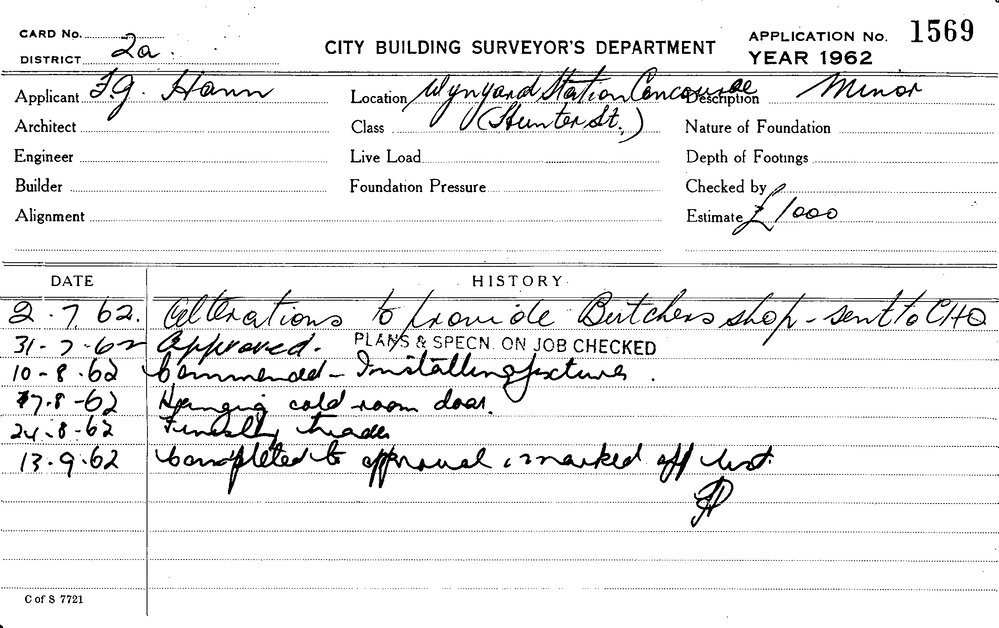 CARD No.
DISTRICT 2a.
CITY BUILDING SURVEYOR'S DEPARTMENT
APPLICATION No. 1569
YEAR 1962
Applicant F.G. Hann
Location Wynyard Station Concourse
Description Minor
Architect
Class (Hunter St.,)
Nature of Foundation
Engineer
Live Load
Depth of Footings
Builder
Foundation Pressure
Checked by
Alignment
Estimate £1000
DATE HISTORY
2.7.62. Alterations to provide Butchers shop - sent to CHO
31-7-62 Approved. PLANS & SPECN. ON JOB CHECKED
10-8-62 Commenced - Installing fixtures.
17.8-62 Hanging cold room door.
24.8-62 trades
13.9.62 Completed to approval & marked off list.
C of S 7721